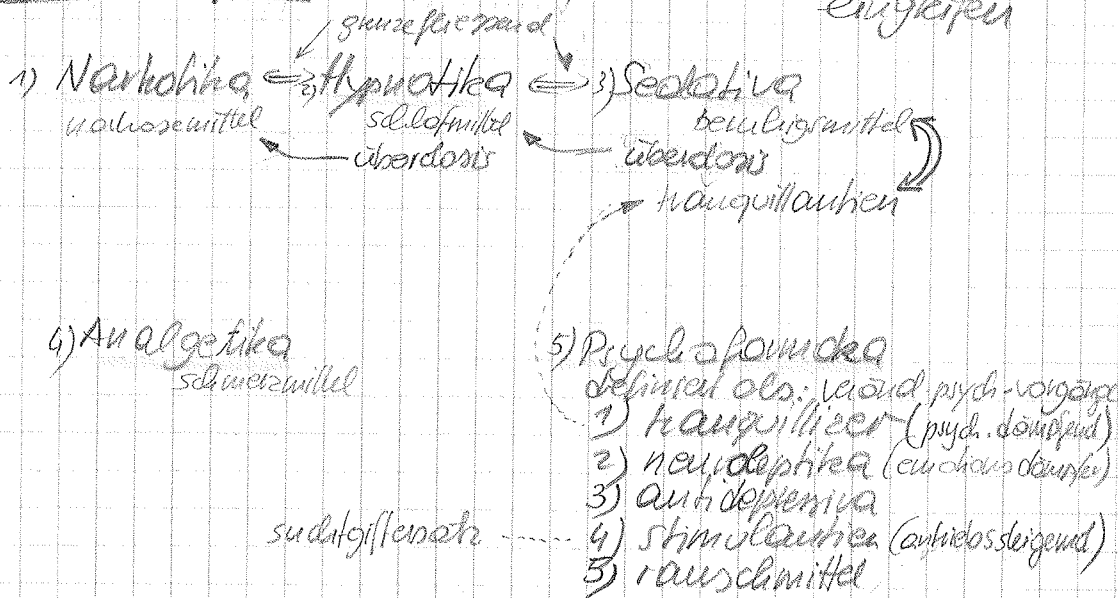 eingreifen
grenzfliessend
1) Narkotika 2) Hypnotika 3) Sedativa
narkosemittel schlafmittel beruhigsmittel
überdosis überdosis
tranquillantien
4) Analgetika 5) Psychofarmaka
schmerzmittel definiert als: veränd. psych-vorgänge
1) tranquillizer (psych. dämpfend)
2) neuroleptika (emotions dämpfer)
3) antidepressiva
suchtgiftersatz 4) stimulantien (antriebssteigernd)
5) rauschmittel